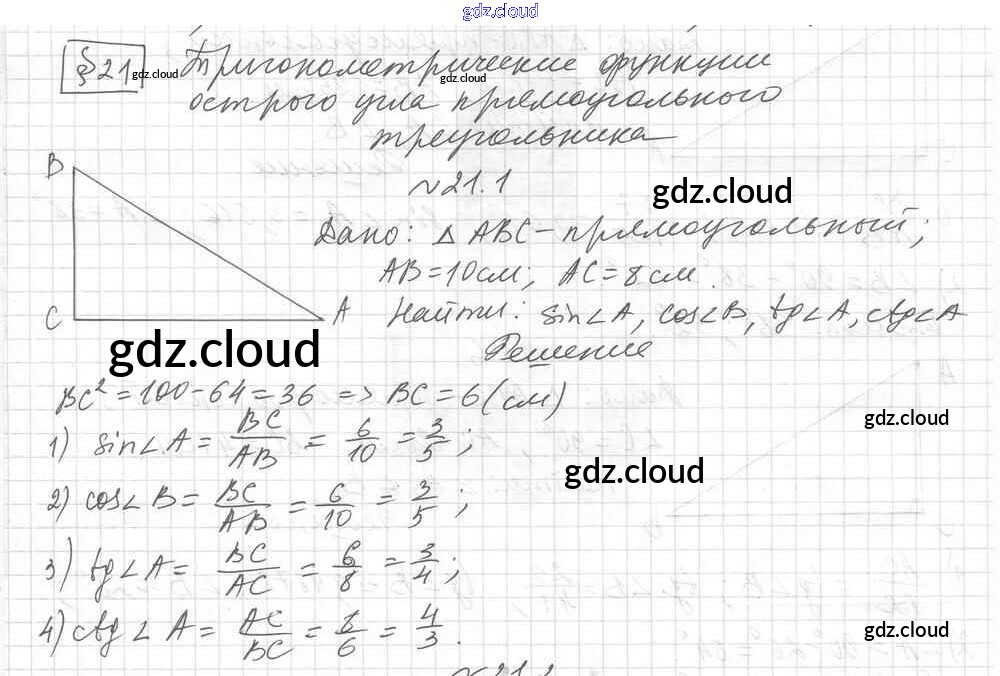 gdz.cloud
§21 gdz.cloud Тригонометрические функции gdz.cloud
острого угла прямоугольного
треугольника
№21.1
B
gdz.cloud
Дано: △ABC - прямоугольный;
AB=10см; AC=8см.
C A
Найти: sin∠A, cos∠B, tg∠A, ctg∠A
gdz.cloud
Решение
BC²=100-64=36 => BC=6(см)
1) sin∠A = BC/AB = 6/10 = 3/5;
gdz.cloud
gdz.cloud
2) cos∠B = BC/AB = 6/10 = 3/5;
3) tg∠A = BC/AC = 6/8 = 3/4;
4) ctg∠A = AC/BC = 8/6 = 4/3.
gdz.cloud